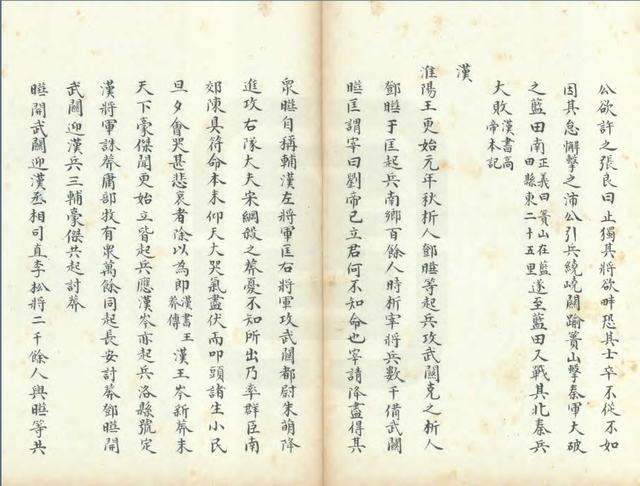 公欲許之張良曰止獨其將欲畔恐其士卒不從不如
因其怠懈擊之沛公引兵繞嶢關踰蕢山擊秦軍大破
之藍田南正義曰蕢山在藍田縣東二十五里遂至藍田又戰其北秦兵
大敗漢書高帝本記
漢
淮陽王更始元年秋析人鄧曄等起兵攻武關克之析人
鄧曄于匡起兵南鄉百餘人時析宰將兵數千備武關
曄匡謂宰曰劉帝已立君何不知命也宰請降盡得其
眾曄自稱輔漢左將軍匡右將軍攻武關都尉朱萌降
進攻右隊大夫宋綱殺之莽憂不知所出乃率群臣南
郊陳其符命本末仰天大哭氣盡伏而叩頭諸生小民
旦夕會哭甚悲哀者除以為郎漢書王莽傳漢王岑新莽末
天下豪傑聞更始立皆起兵應漢岑亦起兵洛縣號定
漢將軍誅莽庸部牧有眾萬餘同起長安討莽鄧曄開
武關迎漢兵三輔豪傑共起討莽
曄開武關迎漢丞相司直李松將二千餘人與曄等共